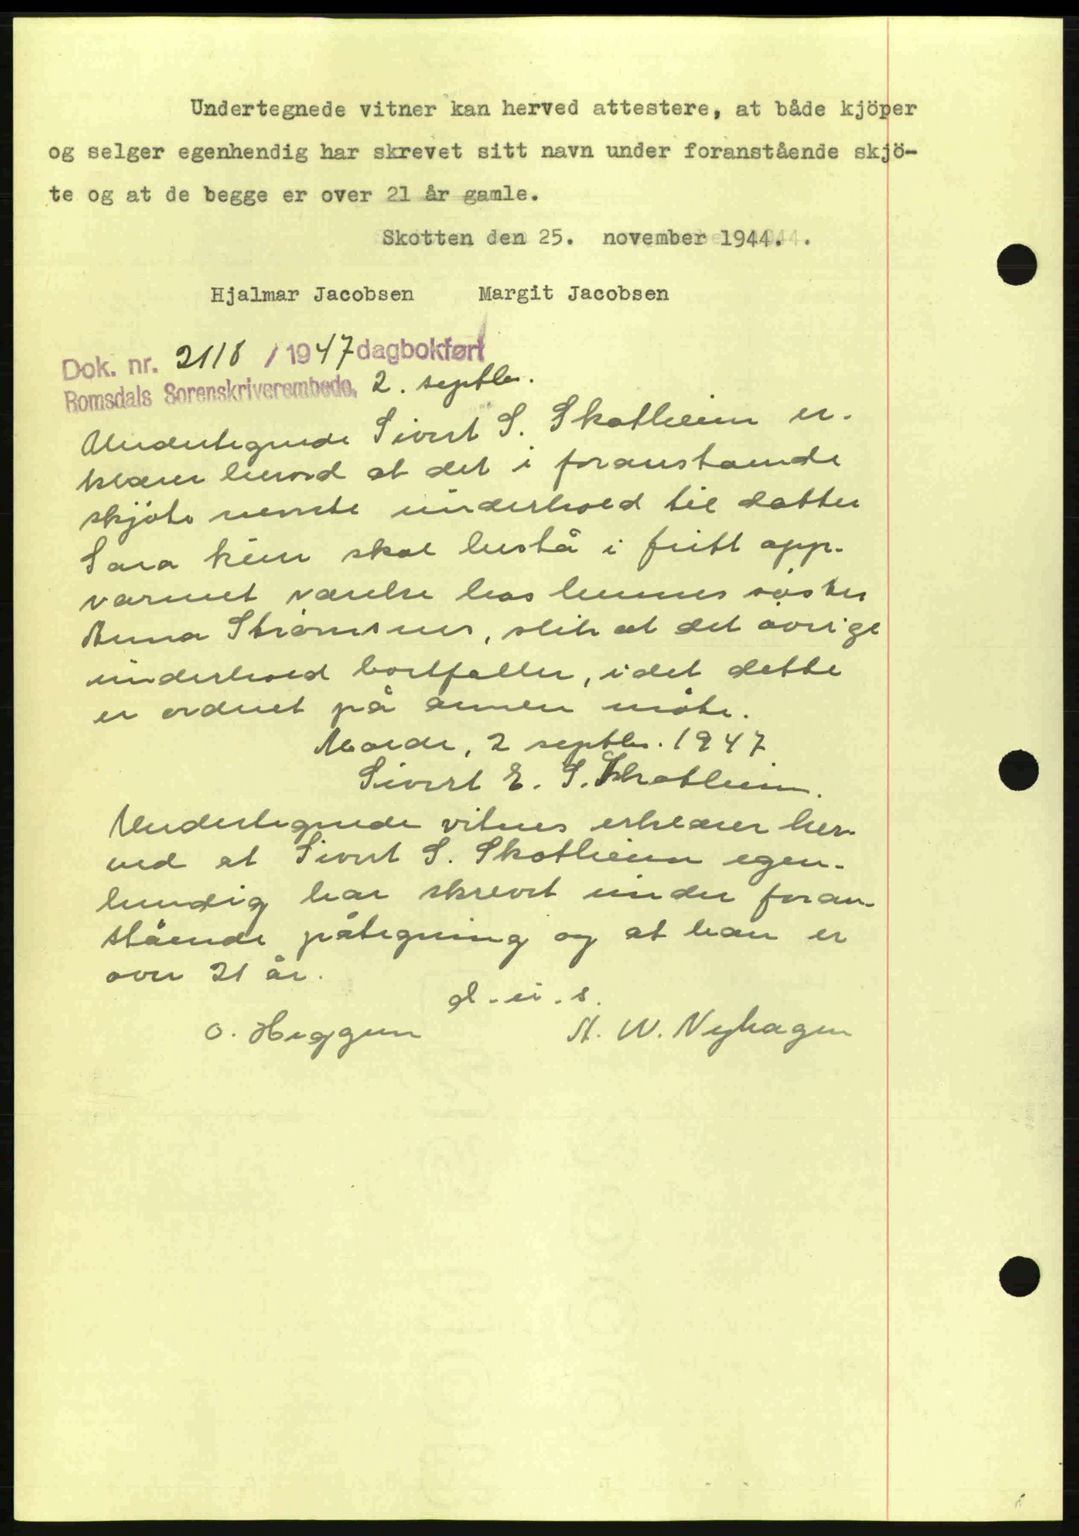 Undertegnede vitner kan herved attestere, at både kjöper
og selger egenhendig har skrevet sitt navn under foranstående skjö-
te og at de begge er over 21 år gamle.
Skotten den 25. november 1944.
Hjalmar Jacobsen Margit Jacobsen
Dok. nr. 2118 / 1947 dagbokført
Romsdals Sorenskriverembede, 2. septbr.
Undertegnede Sivert S. Skotheim er-
klærer herved at det i foranstående
skjøte nevnte underhold til datter
Sara kun skal bestå i fritt opp-
varmet værelse hos hennes søster
Anna Strømsnes, slik at det øvrige
underhold bortfaller, idet dette
er ordnet på annen måte.
Molde, 2 septbr. 1947
Sivert E. S. Skotheim.
Undertegnede vitner erklærer her-
ved at Sivert S. Skotheim egen-
hendig har skrevet under foran-
stående påtegning og at han er
over 21 år.
d. u. s.
O. Heggum A. W. Nyhagen